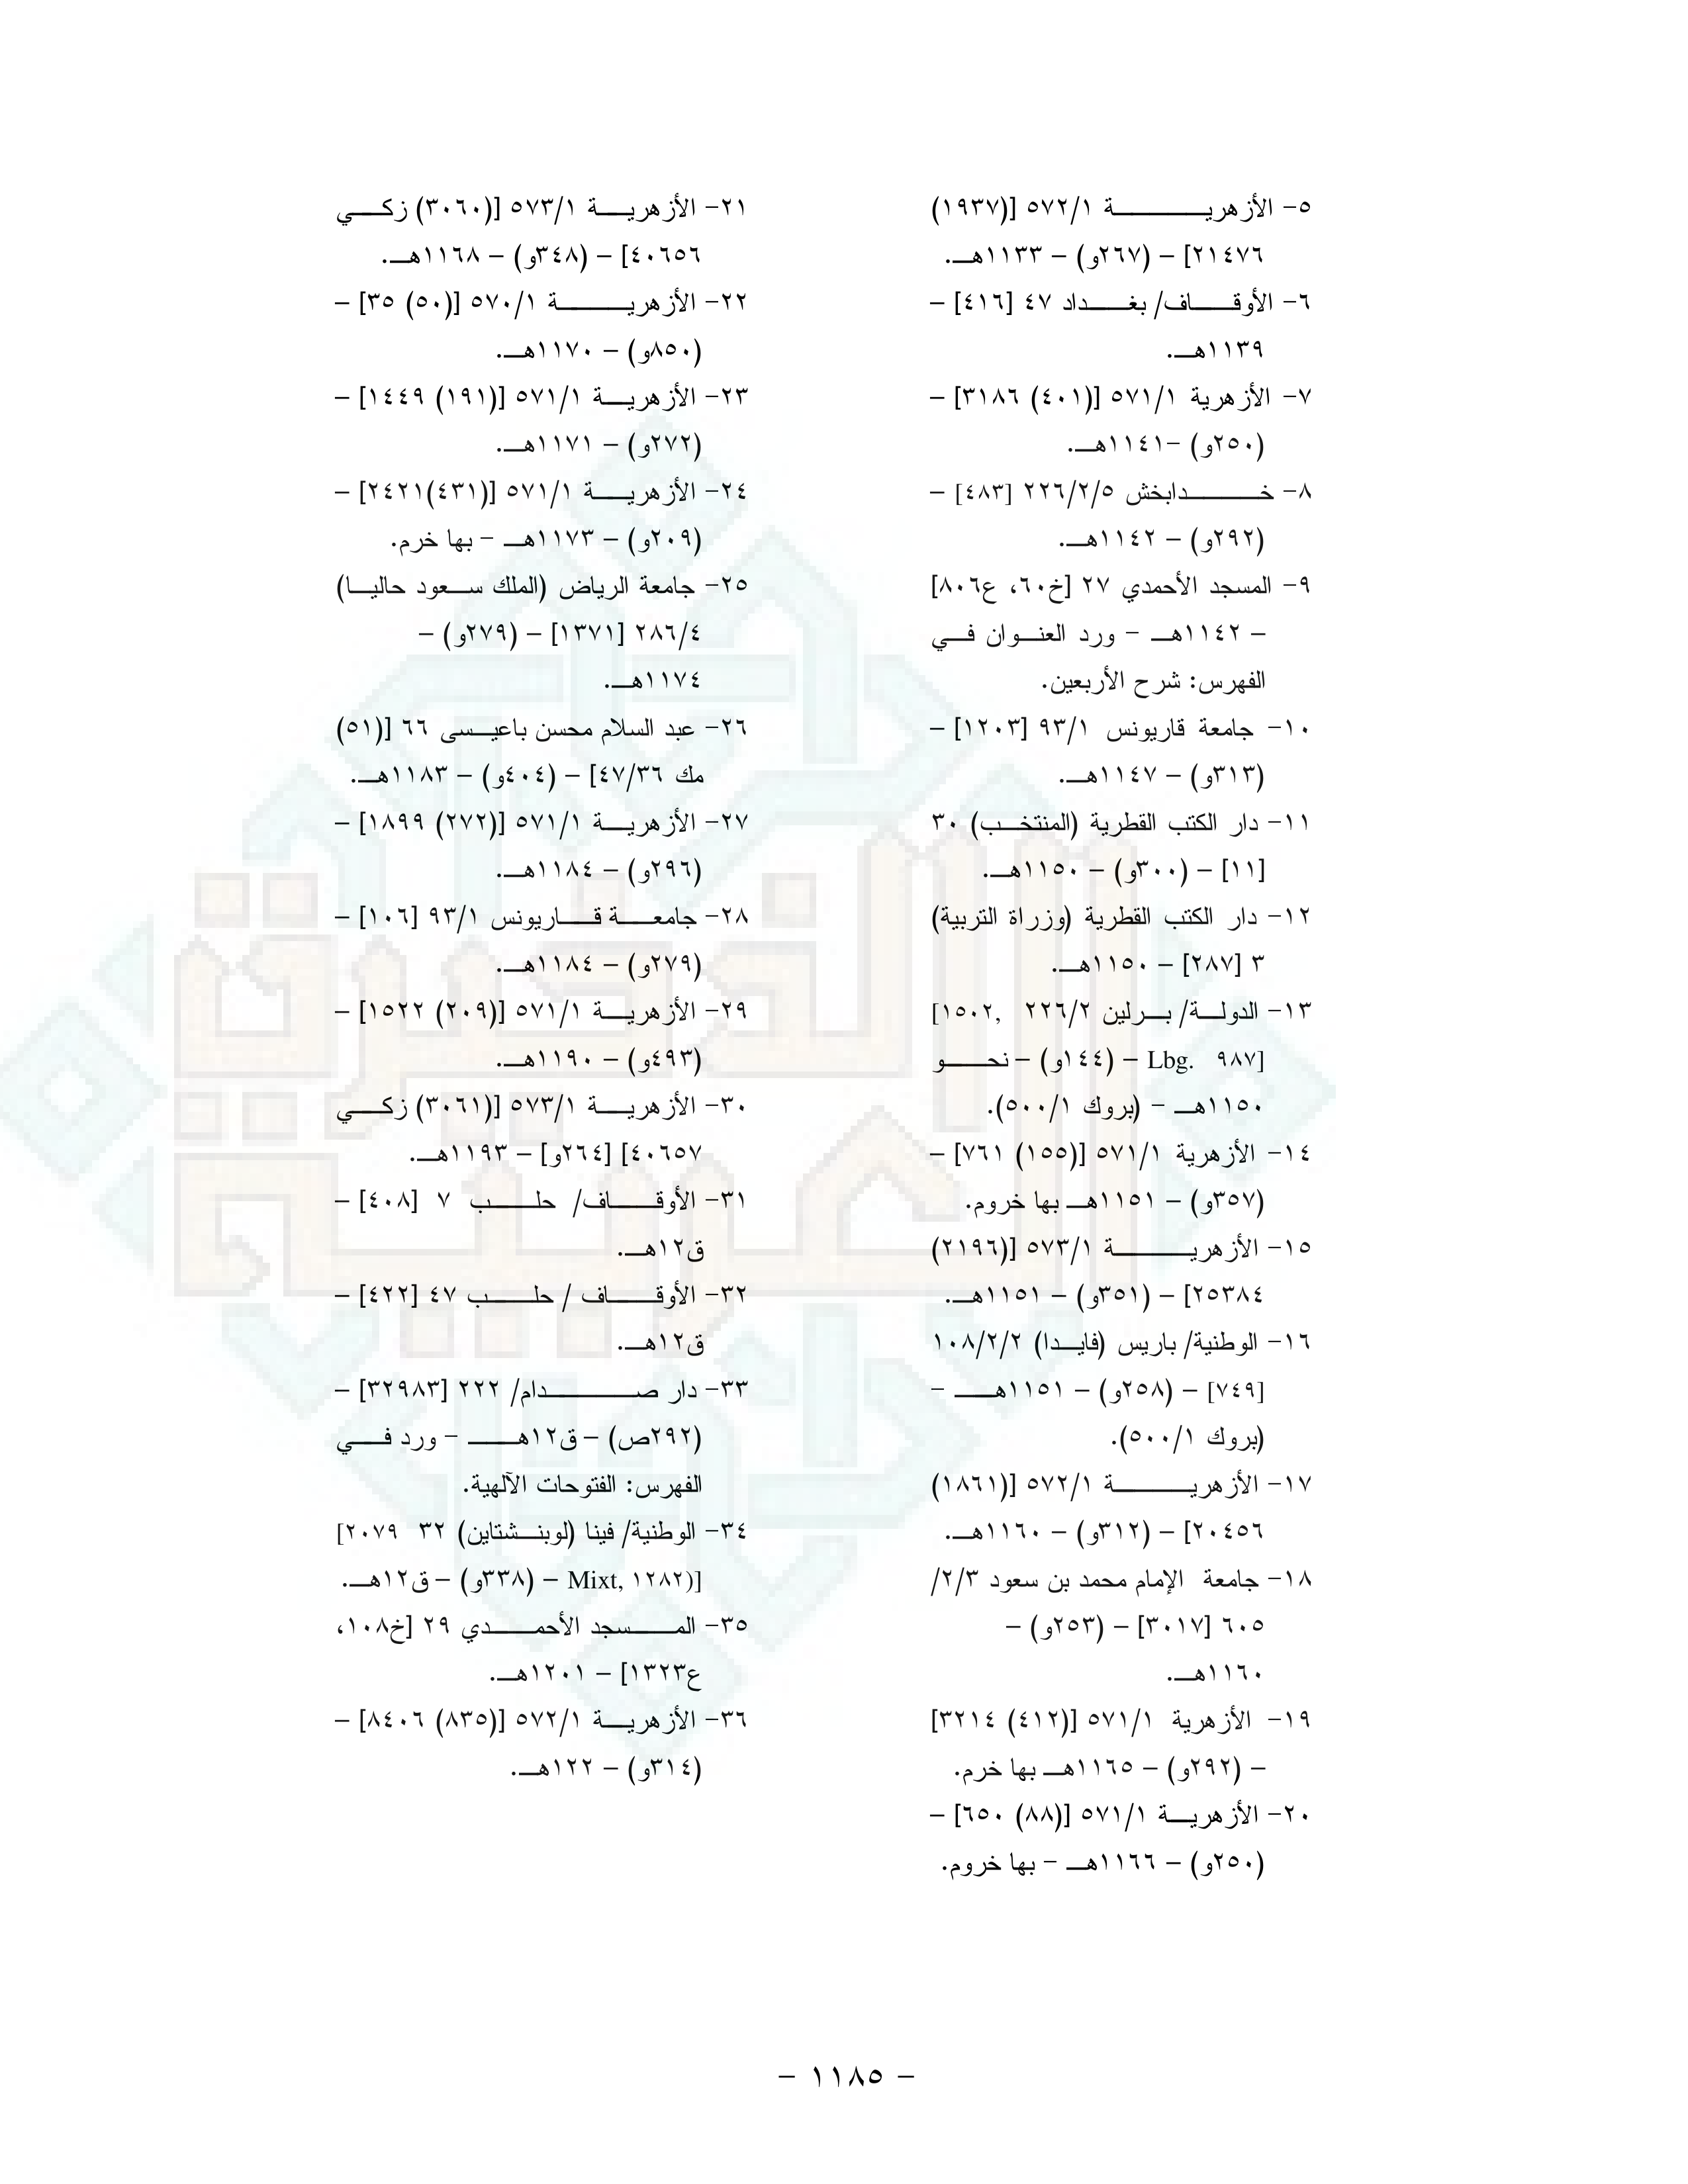 ٥- الأزهرية ٥٧٢/١ [(١٩٣٧)
٢١٤٧٦] – (٢٦٧و) – ١١٣٣هـ.
٦- الأوقاف/ بغداد ٤٧ [٤١٦] –
١١٣٩هـ.
٧- الأزهرية ٥٧١/١ [(٤٠١) ٣١٨٦] –
(٢٥٠و) –١١٤١هـ.
٨- خدابخش ٢٢٦/٢/٥ [٤٨٣] –
(٢٩٢و) – ١١٤٢هـ.
٩- المسجد الأحمدي ٢٧ [خ٦٠، ع٨٠٦]
– ١١٤٢هـ – ورد العنوان في
الفهرس: شرح الأربعين.
١٠- جامعة قاريونس ٩٣/١ [١٢٠٣] –
(٣١٣و) – ١١٤٧هـ.
١١- دار الكتب القطرية (المنتخب) ٣٠
[١١] – (٣٠٠و) – ١١٥٠هـ.
١٢- دار الكتب القطرية (وزراة التربية)
٣ [٢٨٧] – ١١٥٠هـ.
١٣- الدولة/ برلين ٢٢٦/٢ [١٥٠٢,
Lbg. ٩٨٧] – (١٤٤و) – نحو
١١٥٠هـ – (بروك ٥٠٠/١).
١٤- الأزهرية ٥٧١/١ [(١٥٥) ٧٦١] –
(٣٥٧و) – ١١٥١هـ بها خروم.
١٥- الأزهرية ٥٧٣/١ [(٢١٩٦)
٢٥٣٨٤] – (٣٥١و) – ١١٥١هـ.
١٦- الوطنية/ باريس (فايدا) ١٠٨/٢/٢
[٧٤٩] – (٢٥٨و) – ١١٥١هـ –
(بروك ٥٠٠/١).
١٧- الأزهرية ٥٧٢/١ [(١٨٦١)
٢٠٤٥٦] – (٣١٢و) – ١١٦٠هـ.
١٨- جامعة الإمام محمد بن سعود ٢/٣/
٦٠٥ [٣٠١٧] – (٢٥٣و) –
١١٦٠هـ.
١٩- الأزهرية ٥٧١/١ [(٤١٢) ٣٢١٤]
– (٢٩٢و) – ١١٦٥هـ بها خرم.
٢٠- الأزهرية ٥٧١/١ [(٨٨) ٦٥٠] –
(٢٥٠و) – ١١٦٦هـ – بها خروم.
٢١- الأزهرية ٥٧٣/١ [(٣٠٦٠) زكي
٤٠٦٥٦] – (٣٤٨و) – ١١٦٨هـ.
٢٢- الأزهرية ٥٧٠/١ [(٥٠) ٣٥] –
(٨٥٠و) – ١١٧٠هـ.
٢٣- الأزهرية ٥٧١/١ [(١٩١) ١٤٤٩] –
(٢٧٢و) – ١١٧١هـ.
٢٤- الأزهرية ٥٧١/١ [(٤٣١)٢٤٢١] –
(٢٠٩و) – ١١٧٣هـ – بها خرم.
٢٥- جامعة الرياض (الملك سعود حاليا)
٢٨٦/٤ [١٣٧١] – (٢٧٩و) –
١١٧٤هـ.
٢٦- عبد السلام محسن باعيسى ٦٦ [(٥١)
مك ٤٧/٣٦] – (٤٠٤و) – ١١٨٣هـ.
٢٧- الأزهرية ٥٧١/١ [(٢٧٢) ١٨٩٩] –
(٢٩٦و) – ١١٨٤هـ.
٢٨- جامعة قاريونس ٩٣/١ [١٠٦] –
(٢٧٩و) – ١١٨٤هـ.
٢٩- الأزهرية ٥٧١/١ [(٢٠٩) ١٥٢٢] –
(٤٩٣و) – ١١٩٠هـ.
٣٠- الأزهرية ٥٧٣/١ [(٣٠٦١) زكي
٤٠٦٥٧] [٢٦٤و] – ١١٩٣هـ.
٣١- الأوقاف/ حلب ٧ [٤٠٨] –
ق١٢هـ.
٣٢- الأوقاف / حلب ٤٧ [٤٢٢] –
ق١٢هـ.
٣٣- دار صدام/ ٢٢٢ [٣٢٩٨٣] –
(٢٩٢ص) – ق١٢هـ – ورد في
الفهرس: الفتوحات الآلهية.
٣٤- الوطنية/ فينا (لوبنشتاين) ٣٢ [٢٠٧٩
(Mixt, ١٢٨٢] – (٣٣٨و) – ق١٢هـ.
٣٥- المسجد الأحمدي ٢٩ [خ١٠٨،
ع١٣٢٣] – ١٢٠١هـ.
٣٦- الأزهرية ٥٧٢/١ [(٨٣٥) ٨٤٠٦] –
(٣١٤و) – ١٢٢هـ.
– ١١٨٥ –